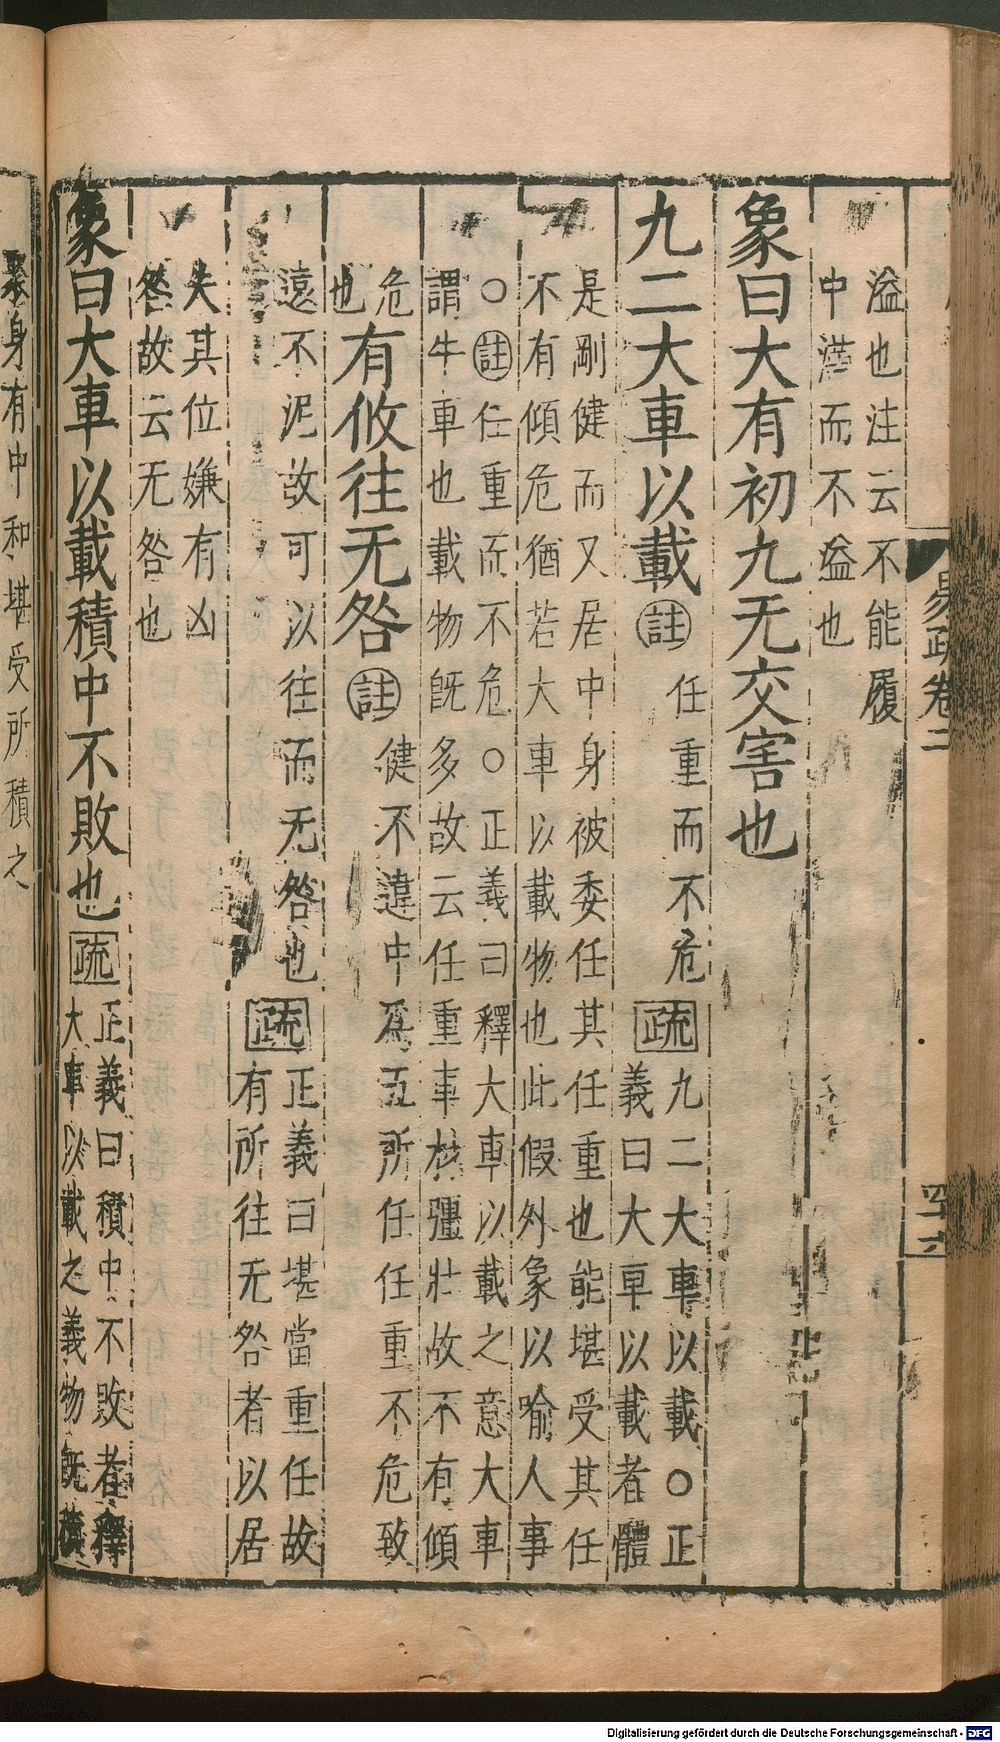 易疏卷二
四十六
溢也注云不能履
中滿而不溢也
象曰大有初九无交害也
九二大車以載
註
任重而不危
疏
九二大車以載○正
義曰大車以載者體
是剛健而又居中身被委任其任重也能堪受其任
不有傾危猶若大車以載物也此假外象以喻人事
○註任重而不危○正義曰釋大車以載之意大車
謂牛車也載物既多故云任重車材彊壯故不有傾
危
也
有攸往无咎
註
健不違中爲五所任任重不危致
遠不泥故可以往而无咎也
疏
正義曰堪當重任故
有所往无咎者以居
失其位嫌有凶
咎故云无咎也
象曰大車以載積中不敗也
疏
正義曰積中不敗者釋
大車以載之義物既積
身有中和堪受所積之
Digitalisierung gefördert durch die Deutsche Forschungsgemeinschaft - DFG